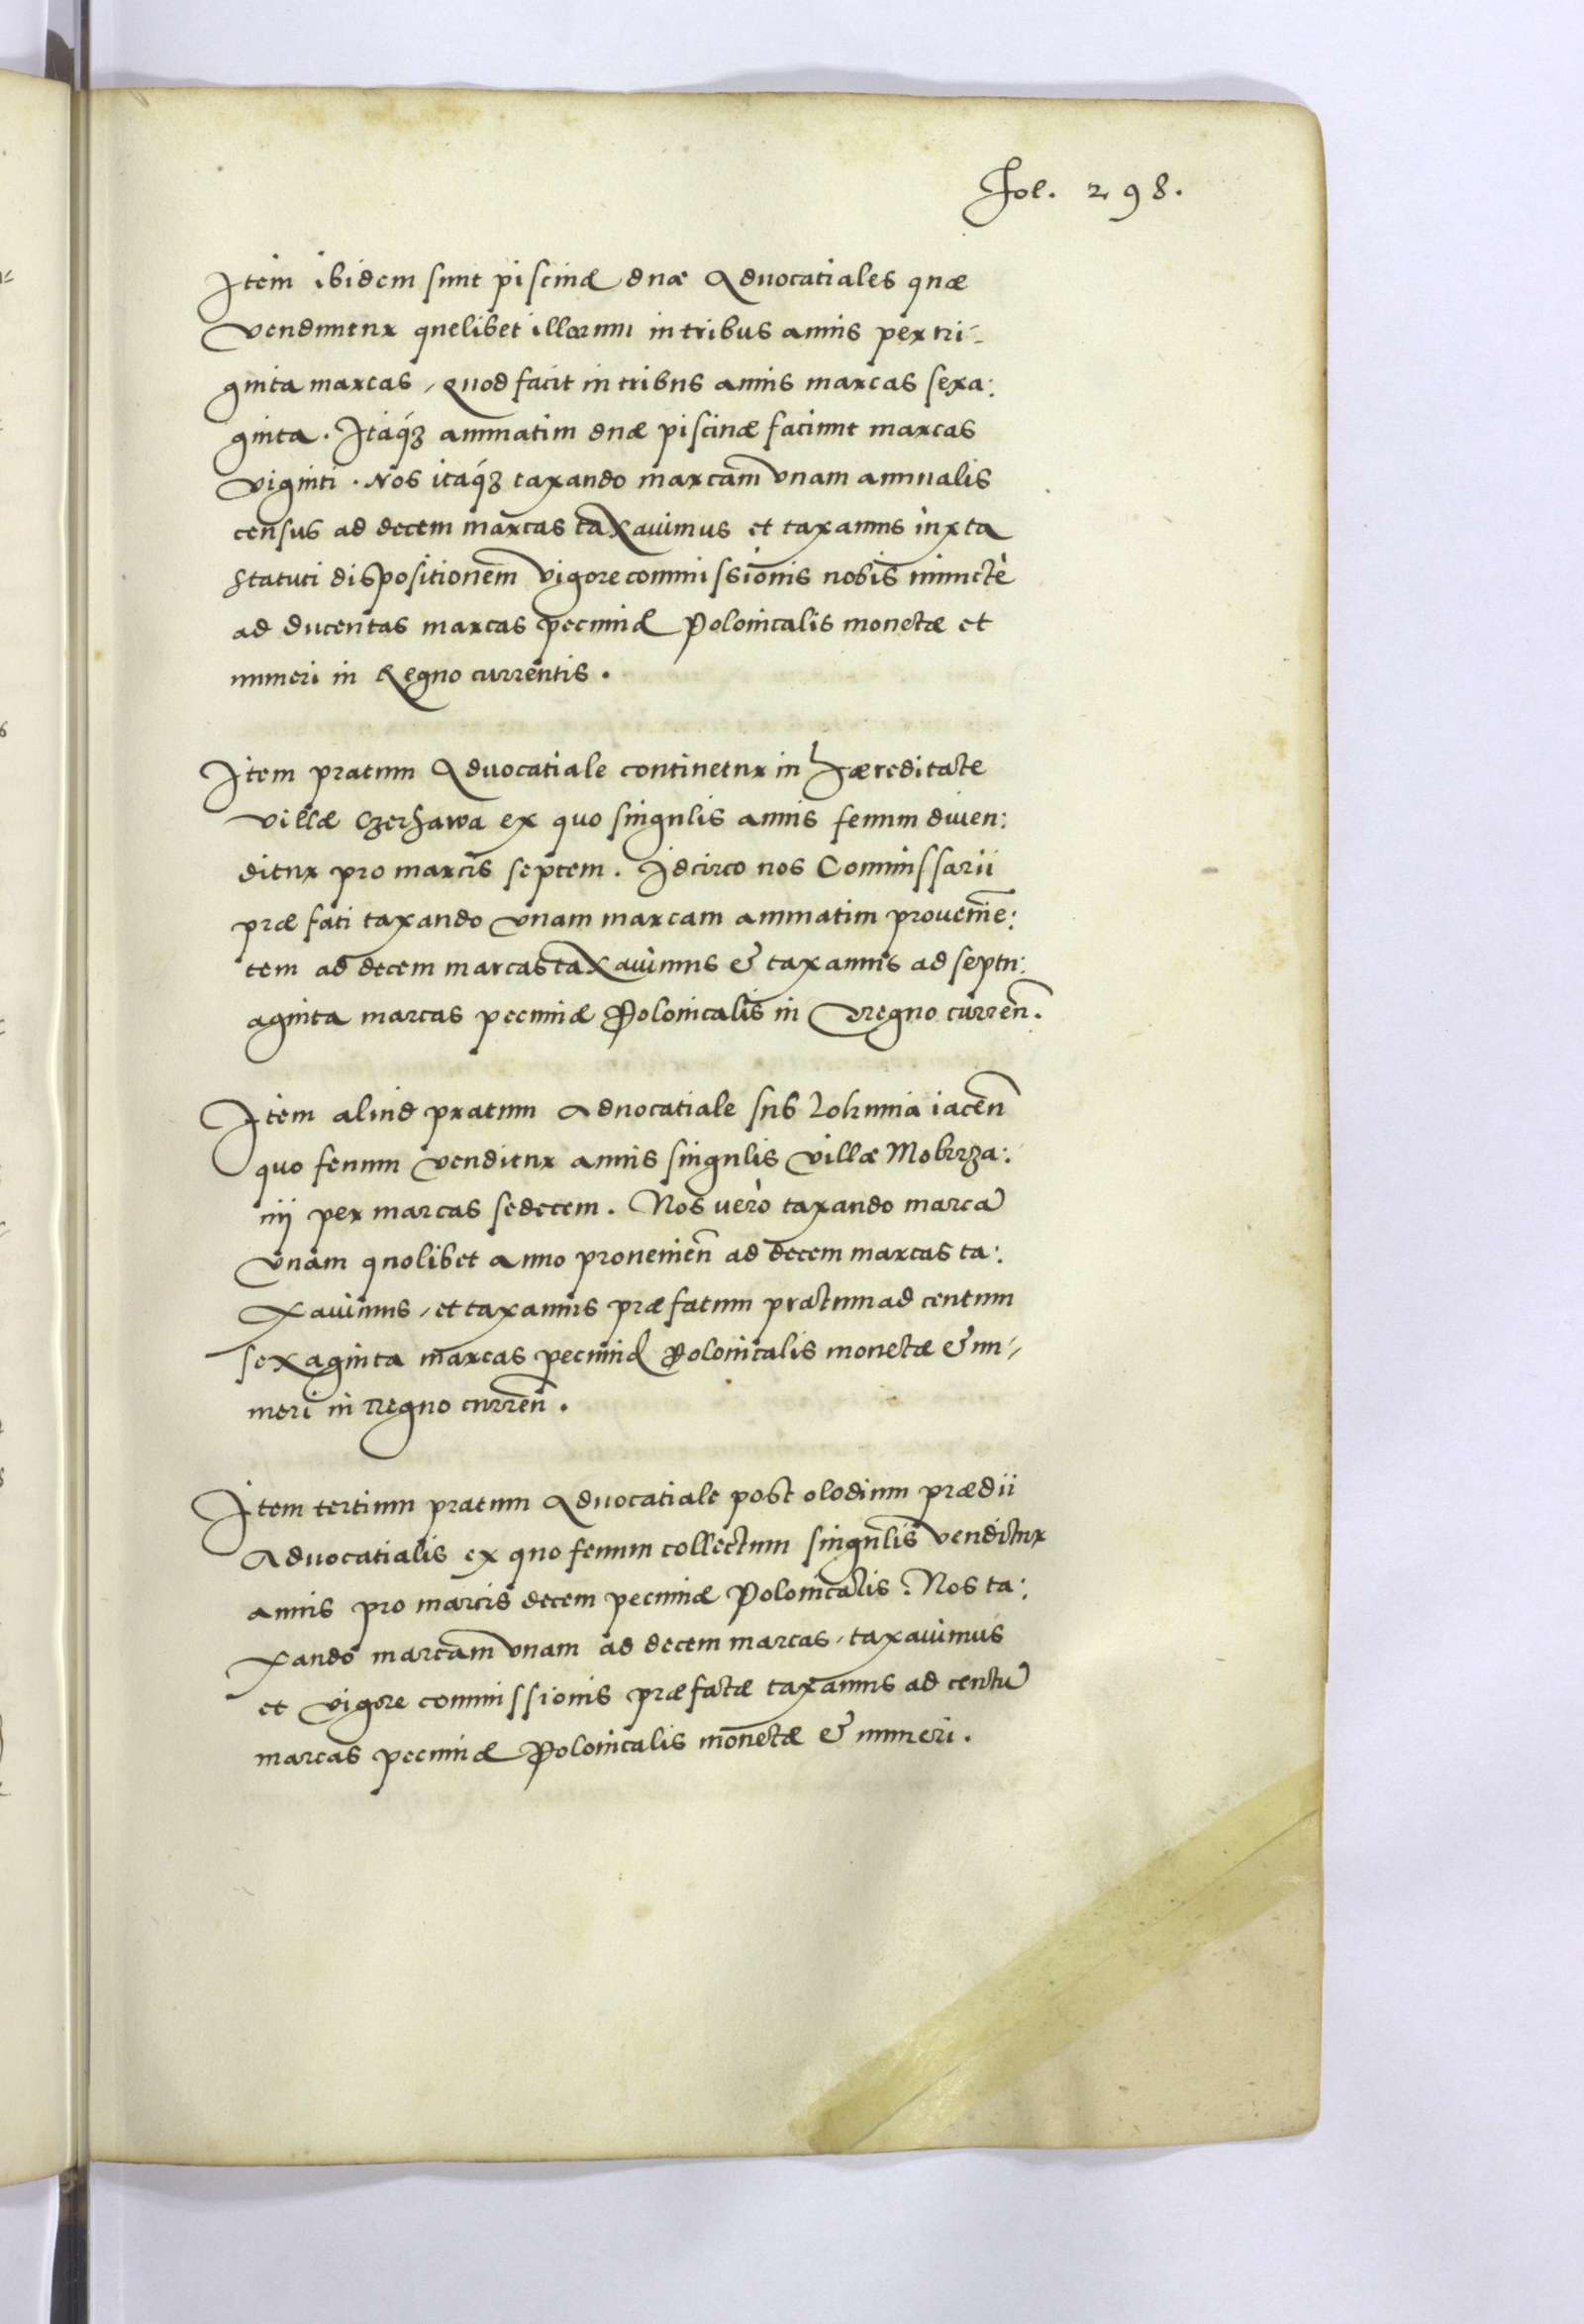 Fol. 298.
Item ibidem sunt piscinæ duæ Aduocatiales quæ
venduntur quelibet illarum in tribus annis per tri-
ginta marcas, quod facit in tribus annis marcas sexa:
ginta. Itaq3 annuatim duæ piscinæ faciunt marcas
viginti. Nos itaq3 taxando marcam vnam annualis
census ad decem marcas taxauimus et taxamus iuxta
statuti dispositionem vigore commissionis nobis iniunctè
ad ducentas marcas pecuniæ Polonicalis monetæ et
numeri in Regno currentis.
Item pratum Aduocatiale continetur in Hæreditate
villæ Czerhawa ex quo singulis annis fenum diuen:
ditur pro marcis septem. Idcirco nos Commissarii
præfati taxando vnam marcam annuatim proueniē:
tem ad decem marcas taxauimus & taxamus ad septu:
aginta marcas pecuniæ Polonicalis in Regno curren̄.
Item aliud pratum Aduocatiale sub Lokunia iacen̄
quo fenum venditur annis singulis villæ Mokrza:
nij per marcas sedecem. Nos uerò taxando marcā
vnam quolibet anno prouenien̄ ad decem marcas ta:
xauimus, et taxamus præfatum pratum ad centum
sexaginta marcas pecuniæ Polonicalis monetæ & nu-
meri in Regno curren̄.
Item tertium pratum Aduocatiale post olodium prædii
Aduocatialis ex quo fenum collectum singulis venditur
annis pro marcis decem pecuniæ Polonicalis. Nos ta:
xando marcam vnam ad decem marcas, taxauimus
et vigore commissionis præfatæ taxamus ad centū
marcas pecuniæ Polonicalis monetæ & numeri.